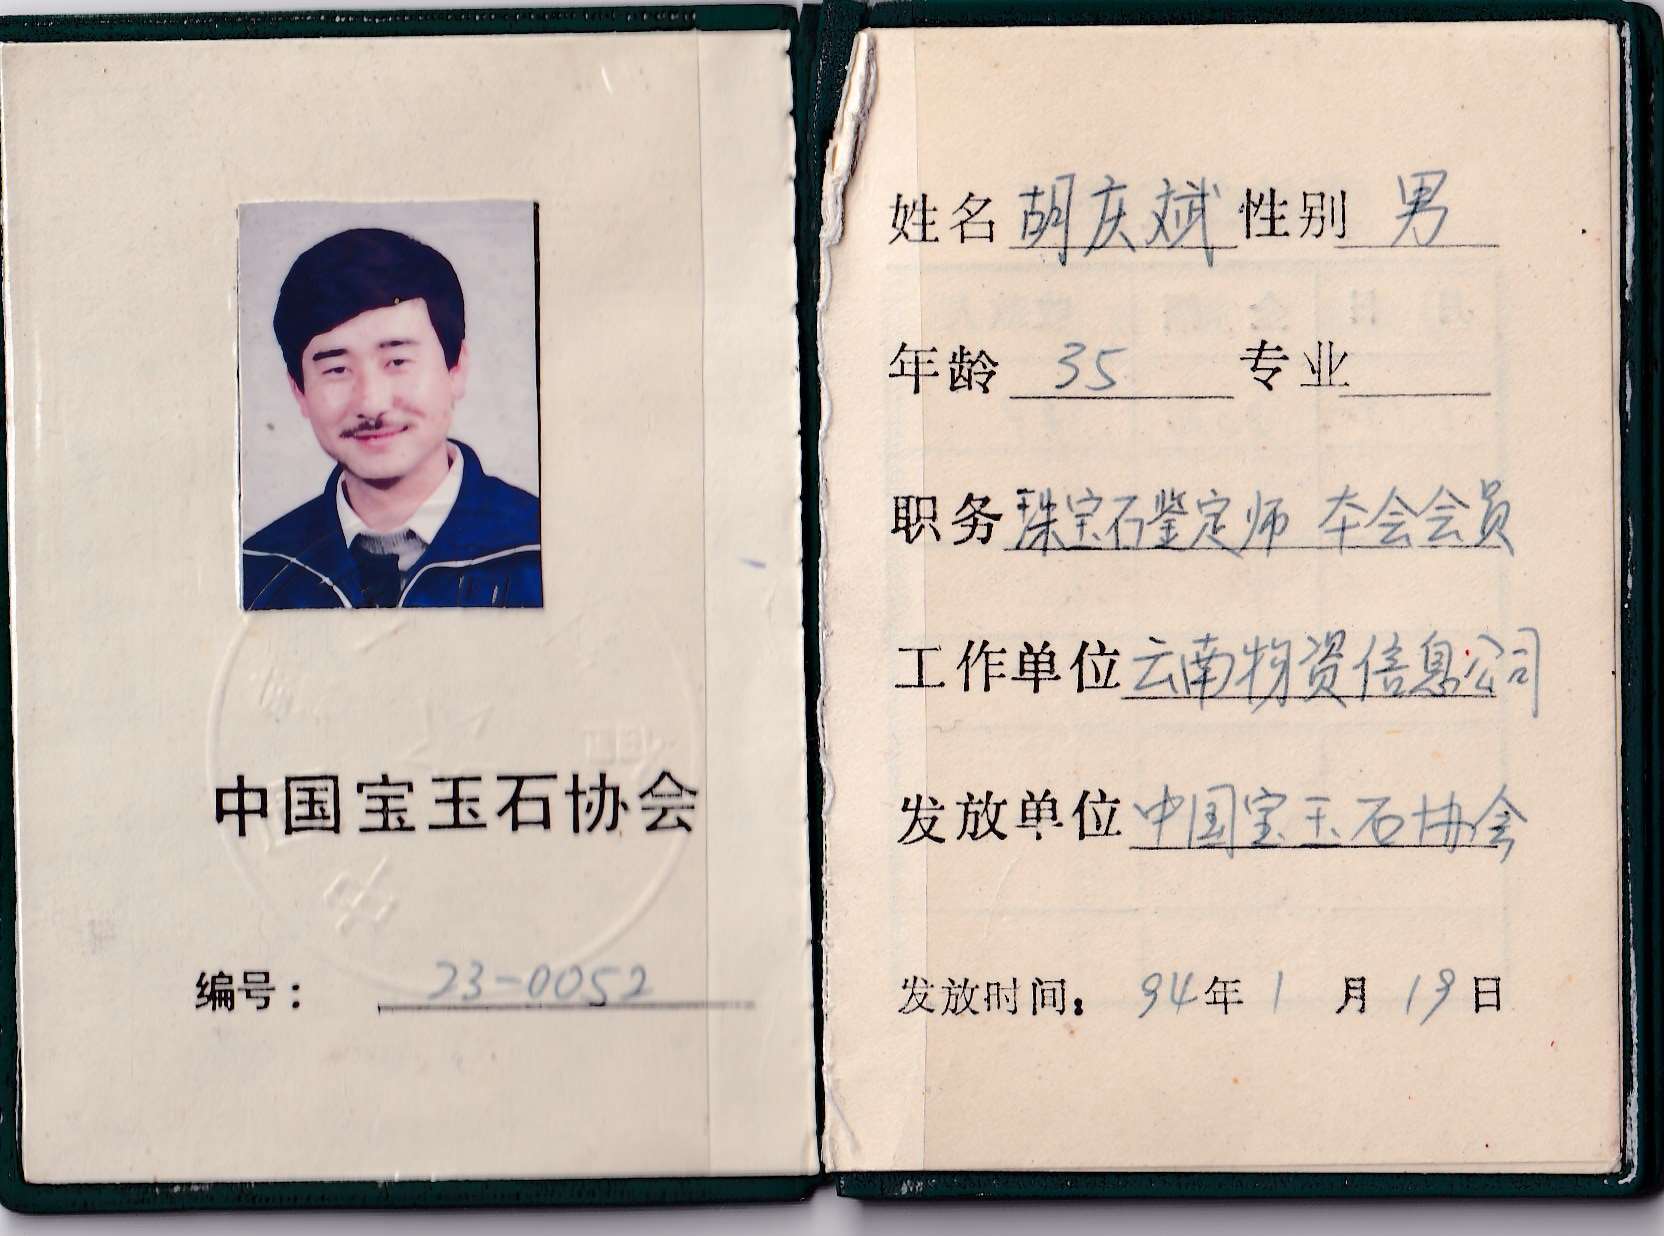 中国宝玉石协会
编号： 23-0052
姓名 胡庆斌 性别 男
年龄 35 专业
职务 珠宝石鉴定师 本会会员
工作单位 云南物资信息公司
发放单位 中国宝玉石协会
发放时间： 94年1月19日